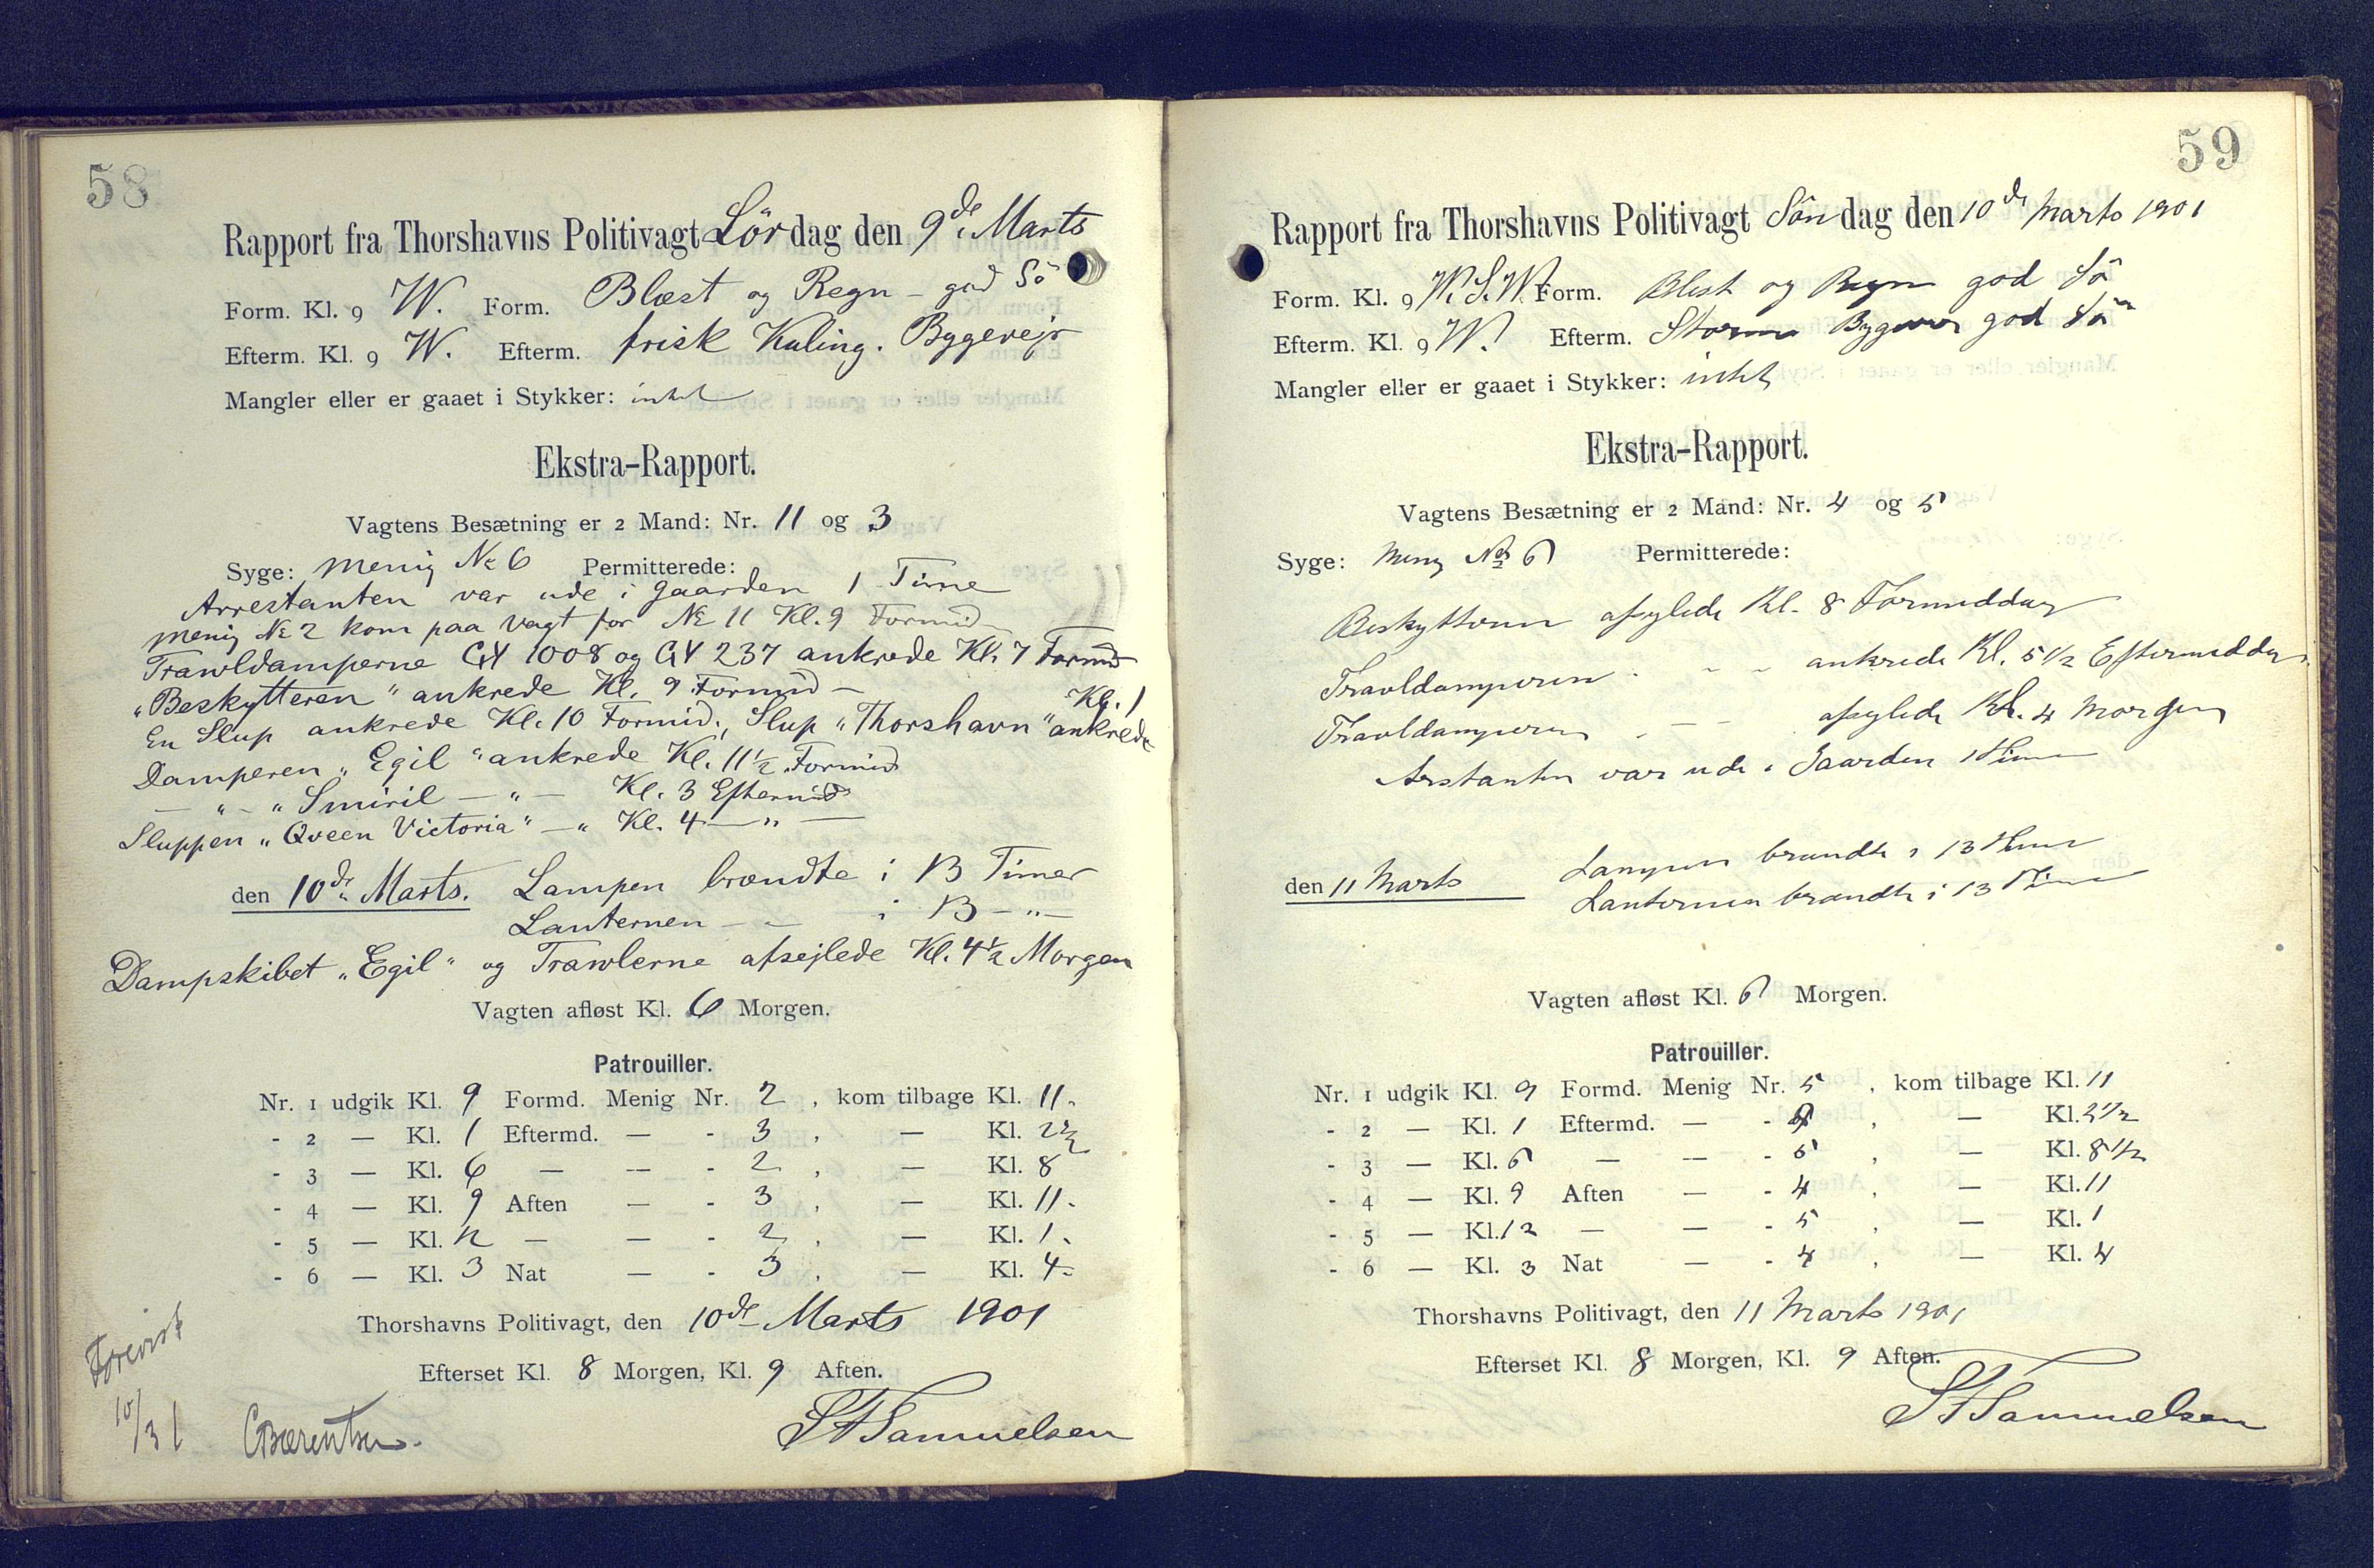 58
Rapport fra Thorshavns Politivagt Lördag den 9de Marts
Form. Kl. 9 W. Form. Blæst og Regn – god Sö
Efterm. Kl. 9 W. Efterm. frisk Kuling. Bygevejr
Mangler eller er gaaet i Stykker: intet
Ekstra-Rapport.
Vagtens Besætning er 2 Mand: Nr. 11 og 3
Syge: Menig № 6 Permitterede:
Arrestanten var ude i Gaarden 1 Time
Menig № 2 kom paa Vagt for № 11 Kl. 9 Formid
Trawldamperne GY 1008 og GY 237 ankrede Kl. 7 Formid
„Beskytteren" ankrede Kl. 9 Formid –
En Slup ankrede Kl. 10 Formid., Slup „Thorshavn" ankrede Kl. 1
Damperen „Egil" ankrede Kl. 11½ Formid
— " — „Smiril — " — Kl. 3 Eftermid
Sluppen „Qveen Victoria" — " Kl. 4 — " —
den 10de Marts. Lampen brændte i 13 Timer
Lanternen – – i 13 – " –
Dampskibet „Egil" og Trawlerne afsejlede Kl. 4½ Morgen
Vagten afløst Kl. 6 Morgen.
Patrouiller.
Nr. 1 udgik Kl. 9 Formd. Menig Nr. 2, kom tilbage Kl. 11.
- 2 — Kl. 1 Eftermd. — - 3, — Kl. 2½
- 3 — Kl. 6 — — - 2, — Kl. 8
- 4 — Kl. 9 Aften — - 3, — Kl. 11.
- 5 — Kl. 12 — — - 2, — Kl. 1.
- 6 — Kl. 3 Nat — - 3, — Kl. 4
Thorshavns Politivagt, den 10de Marts 1901
Efterset Kl. 8 Morgen, Kl. 9 Aften.
Forevist
10/3 1
CBærentsen.
Samuelsen
59
Rapport fra Thorshavns Politivagt Söndag den 10de Marts 1901
Form. Kl. 9 W.S.W. Form. Blest og Regn god Sö
Efterm. Kl. 9 W. Efterm. Storm god Sö
Mangler eller er gaaet i Stykker: intet
Ekstra-Rapport.
Vagtens Besætning er 2 Mand: Nr. 4 og 5
Syge: Menig № 6 Permitterede:
Beskytteren afsejlede Kl. 8 Formiddag
Travldamperen – – ankrede Kl. 5½ Eftermiddag
Travldamperen – – afsejlede Kl. 4 Morgen
Arstanten var ude i Gaarden 1 Time
den 11 Marts Lampen brændte i 13 Timer
Lanternen brændte i 13 Timer
Vagten afløst Kl. 6 Morgen.
Patrouiller.
Nr. 1 udgik Kl. 9 Formd. Menig Nr. 5, kom tilbage Kl. 11
- 2 — Kl. 1 Eftermd. — - , — Kl. 2½
- 3 — Kl. 6 — — - 5, — Kl. 8½
- 4 — Kl. 9 Aften — - 4, — Kl. 11
- 5 — Kl. 12 — — - 5, — Kl. 1
- 6 — Kl. 3 Nat — - 4, — Kl. 4
Thorshavns Politivagt, den 11 Marts 1901
Efterset Kl. 8 Morgen, Kl. 9 Aften.
Samuelsen